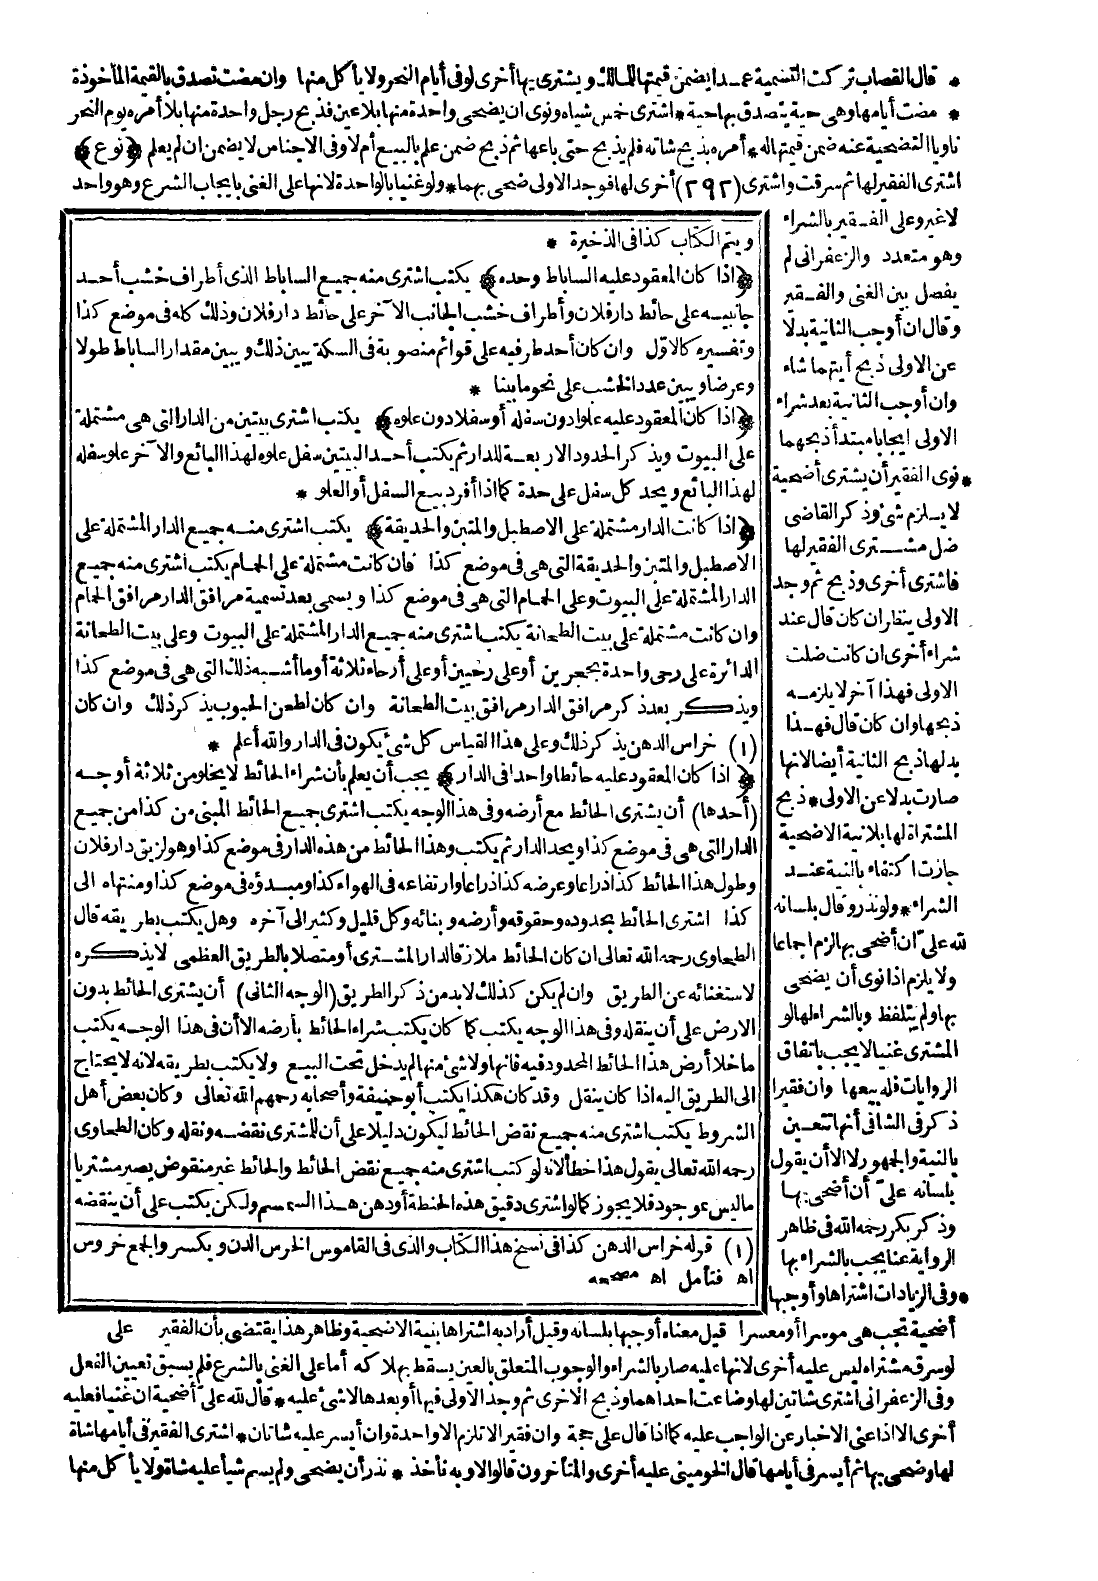 * قال القصاب تركت التسمية عمدا يضمن قيمتها للمالك ويشترى بها أخرى لو فى أيام النحر ولا يأكل منها وان مضت تصدق بالقيمة المأخوذة
* مضت أيامها وهى حية يتصدق بها حية * اشترى خمس شياه ونوى ان يضحى واحدة منها بلا عين فذبح رجل واحدة منها بلا أمره يوم النحر
ناويا التضحية عنه ضمن قيمتها له * أمره بذبح شاته فلم يذبح حتى باعها ثم ذبح ضمن علم بالبيع أم لا وفى الاجناس لا يضمن ان لم يعلم ﴿ نوع ﴾
اشترى الفقير لها ثم سرقت واشترى (٢٩٢) أخرى لها فوجد الاولى ضحى بهما * ولو غنيا بالواحدة لانها على الغنى بايجاب الشرع وهو واحد
لا غير وعلى الفقير بالشراء
وهو متعدد والزعفرانى لم
يفصل بين الغنى والفقير
وقال ان أوجب الثانية بدلا
عن الاولى ذبح أيتهما شاء
وان أوجب الثانية بعد شراء
الاولى ايجابا مبتدأ ذبحهما
* نوى الفقير أن يشترى أضحية
لا يلزم شئ وذكر القاضى
ضل مشترى الفقير لها
فاشترى أخرى وذبح ثم وجد
الاولى ينظر ان كان قال عند
شراء أخرى ان كانت ضلت
الاولى فهذا آخر لا يلزمه
ذبحها وان كان قال فهذا
بدلها ذبح الثانية أيضا لانها
صارت بدلا عن الاولى * ذبح
المشتراة لها بلا نية الاضحية
جازت اكتفاء بالنية عند
الشراء * ولو نذر وقال بلسانه
لله علىّ ان أضحى بها لزم اجماعا
ولا يلزم اذا نوى أن يضحى
بها ولم يتلفظ وبالشراء لها لو
المشترى غنيا لا يجب باتفاق
الروايات فله بيعها وان فقيرا
ذكر فى الشافى أنها تتعين
بالنية والجمهور لا الا أن يقول
بلسانه علىّ أن أضحى بها
وذكر بكر رحمه الله فى ظاهر
الرواية عنا يجب بالشراء بها
* وفى الزيادات اشتراها وأوجبها
ويتم الكتاب كذا فى الذخيرة *
﴿ اذا كان المعقود عليه الساباط وحده ﴾ يكتب اشترى منه جميع الساباط الذى أطراف خشب أحد
جانبيه على حائط دار فلان وأطراف خشب الجانب الآخر على حائط دار فلان وذلك كله فى موضع كذا
وتفسيره كالاوّل وان كان أحد طرفيه على قوائم منصوبة فى السكة يبين ذلك ويبين مقدار الساباط طولا
وعرضا ويبين عدد الخشب على نحو ما بينا *
﴿ اذا كان المعقود عليه علوا دون سفله أو سفلا دون علوه ﴾ يكتب اشترى بيتين من الدار التى هى مشتملة
على البيوت ويذكر الحدود الاربعة للدار ثم يكتب أحد البيتين سفل علوه لهذا البائع والآخر علو سفله
لهذا البائع ويحد كل سفل على حدة كما اذا أفرد بيع السفل أو العلو *
﴿ اذا كانت الدار مشتملة على الاصطبل والمتبن والحديقة ﴾ يكتب اشترى منه جميع الدار المشتملة على
الاصطبل والمتبن والحديقة التى هى فى موضع كذا فان كانت مشتملة على الحمام يكتب اشترى منه جميع
الدار المشتملة على البيوت وعلى الحمام التى هى فى موضع كذا ويسمى بعد تسمية مرافق الدار مرافق الحمام
وان كانت مشتملة على بيت الطحانة يكتب اشترى منه جميع الدار المشتملة على البيوت وعلى بيت الطحانة
الدائرة على رحى واحدة بحجرين أو على رحيين أو على أرحاء ثلاثة أو ما أشبه ذلك التى هى فى موضع كذا
ويذكر بعد ذكر مرافق الدار مرافق بيت الطحانة وان كان لطحن الحبوب يذكر ذلك وان كان
(١) خراس الدهن يذكر ذلك وعلى هذا القياس كل شئ يكون فى الدار والله أعلم *
﴿ اذا كان المعقود عليه حائطا واحدا فى الدار ﴾ يجب أن يعلم بأن شراء الحائط لا يخلو من ثلاثة أوجه
(أحدها) أن يشترى الحائط مع أرضه وفى هذا الوجه يكتب اشترى جميع الحائط المبنى من كذا من جميع
الدار التى هى فى موضع كذا ويحد الدار ثم يكتب وهذا الحائط من هذه الدار فى موضع كذا وهو لزيق دار فلان
وطول هذا الحائط كذا ذراعا وعرضه كذا ذراعا وارتفاعه فى الهواء كذا ومبدؤه فى موضع كذا ومنتهاه الى
كذا اشترى الحائط بحدوده وحقوقه وأرضه وبنائه وكل قليل وكثير الى آخره وهل يكتب بطريقه قال
الطحاوى رحمه الله تعالى ان كان الحائط ملازقا لدار المشترى أو متصلا بالطريق العظمى لا يذكره
لاستغنائه عن الطريق وان لم يكن كذلك لا بد من ذكر الطريق (الوجه الثانى) أن يشترى الحائط بدون
الارض على أن ينقله وفى هذا الوجه يكتب كما كان يكتب شراء الحائط بأرضه الا أن فى هذا الوجه يكتب
ما خلا أرض هذا الحائط المحدود فيه فانها ولا شئ منها لم يدخل تحت البيع ولا يكتب بطريقه لانه لا يحتاج
الى الطريق اليه اذا كان ينقل وقد كان هكذا يكتب أبو حنيفة وأصحابه رحمهم الله تعالى وكان بعض أهل
الشروط يكتب اشترى منه جميع نقض الحائط ليكون دليلا على أن للمشترى نقضه ونقله وكان الطحاوى
رحمه الله تعالى يقول هذا خطأ لانه لو كتب اشترى منه جميع نقض الحائط والحائط غير منقوض يصير مشتريا
ما ليس بموجود فلا يجوز كما لو اشترى دقيق هذه الحنطة أو دهن هذا السمسم ولكن يكتب على أن ينقضه
(١) قوله خراس الدهن كذا فى نسخ هذا الكتاب والذى فى القاموس الخرس الدن ويكسر والجمع خروس
اه فتأمل اه مصححه
أضحية تجب هى موسرا أو معسرا قيل معناه أوجبها بلسانه وقيل أراد به اشتراها بنية الاضحية وظاهر هذا يقتضى بأن الفقير على
لو سرق مشتراه ليس عليه أخرى لانها عليه صار بالشراء والوجوب المتعلق بالعين يسقط بهلاكه أما على الغنى بالشرع فلم يسبق تعيين الفعل
وفى الزعفرانى اشترى شاتين لها وضاعت احداهما وذبح الاخرى ثم وجد الاولى فيها أو بعدها لا شئ عليه * قال لله علىّ أضحية ان غنيا فعليه
أخرى الا اذا عنى الاخبار عن الواجب عليه كما اذا قال على حجة وان فقيرا لا تلزم الا واحدة وان أيسر عليه شاتان * اشترى الفقير فى أيامها شاة
لها وضحى بها ثم أيسر فى أيامها قال الخومينى عليه أخرى والمتأخرون قالوا لا وبه نأخذ * نذر أن يضحى ولم يسم شيأ عليه شاة ولا يأكل منها